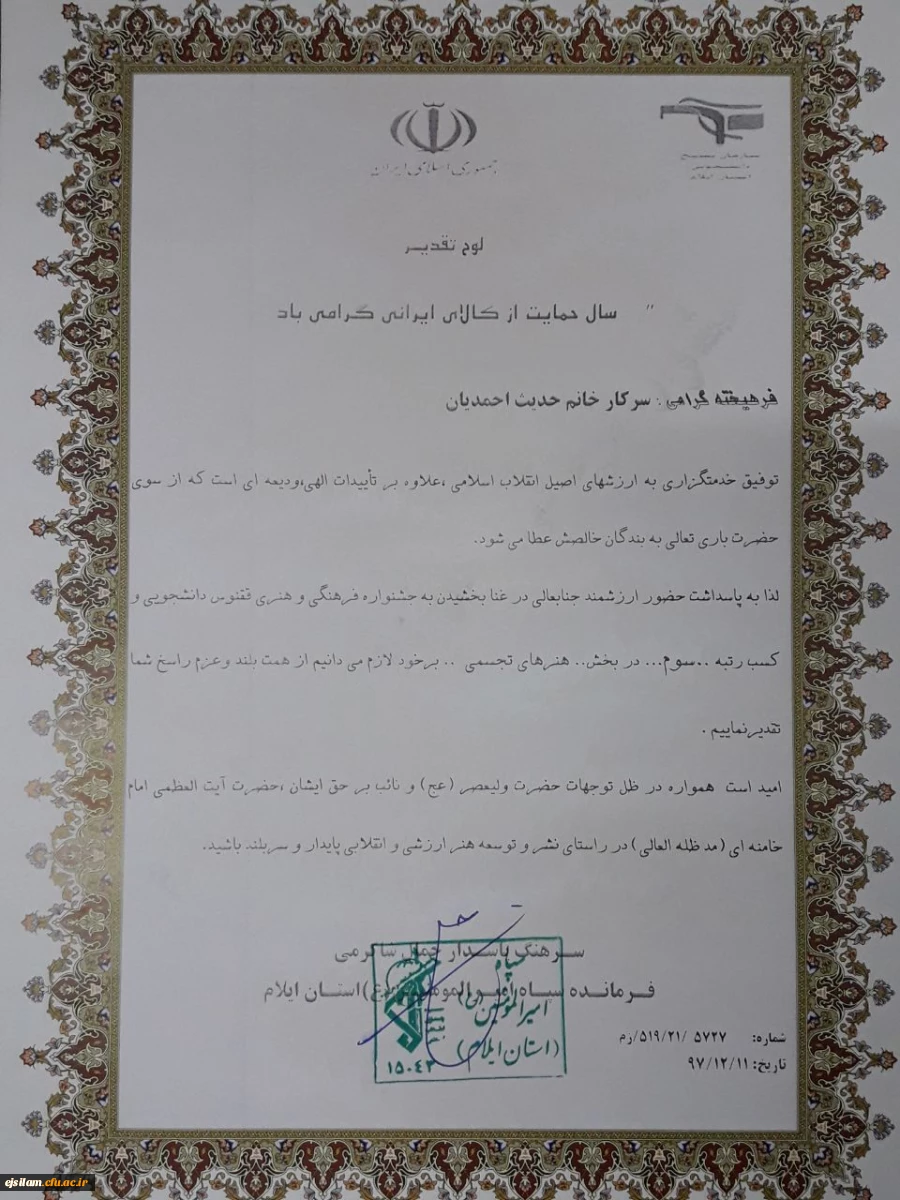 جمهوری اسلامی ایران
سازمان بسیج
دانشجویی
استان ایلام
لوح تقدیر
" سال حمایت از کالای ایرانی گرامی باد
فرهیخته گرامی : سرکار خانم حدیث احمدیان
توفیق خدمتگزاری به ارزشهای اصیل انقلاب اسلامی ،علاوه بر تأییدات الهی،ودیعه ای است که از سوی
حضرت باری تعالی به بندگان خالصش عطا می شود.
لذا به پاسداشت حضور ارزشمند جنابعالی در غنا بخشیدن به جشنواره فرهنگی و هنری ققنوس دانشجویی و
کسب رتبه ..سوم... در بخش.. هنرهای تجسمی .. برخود لازم می دانیم از همت بلند وعزم راسخ شما
تقدیرنماییم .
امید است همواره در ظل توجهات حضرت ولیعصر (عج) و نائب بر حق ایشان ،حضرت آیت العظمی امام
خامنه ای (مد ظله العالی) در راستای نشر و توسعه هنر ارزشی و انقلابی پایدار و سربلند باشید.
سرهنگ پاسدار جمال شاکرمی
فرمانده سپاه امیرالمومنین(ع)استان ایلام
سپاه
امیرالمؤمنین (ع)
(استان ایلام)
۱۵۰۴۳
شماره: ۵۷۲۷ /۵۱۹/۲۱/زم
تاریخ: ۹۷/۱۲/۱۱
ejsilam.cfu.ac.ir